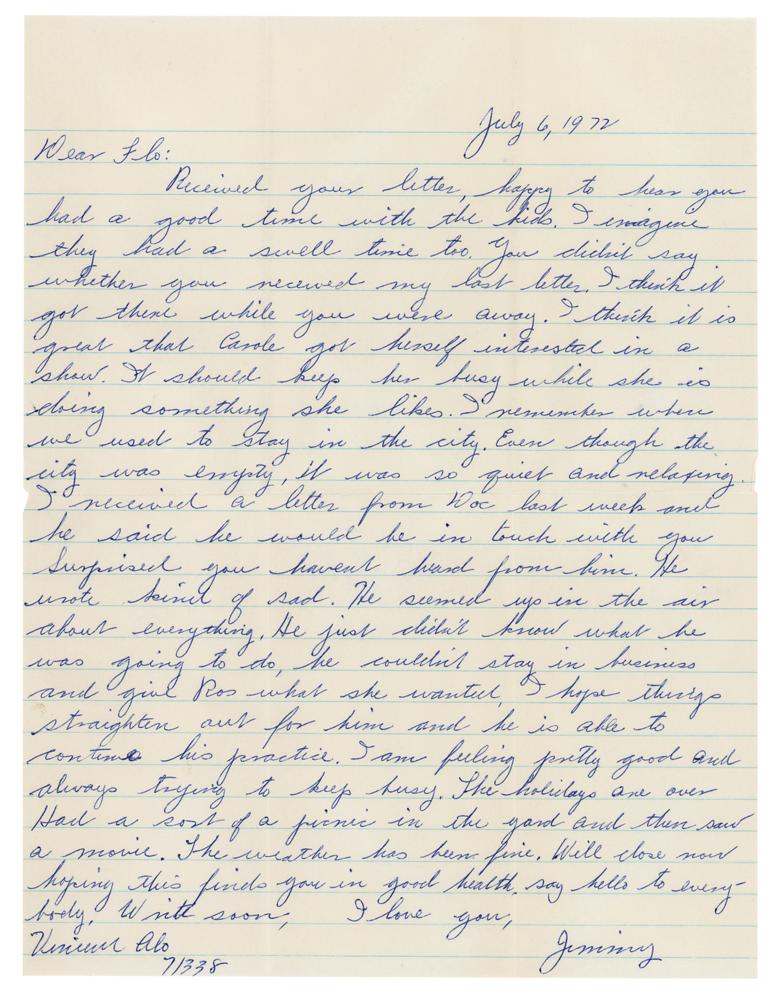 July 6, 1972
Dear Flo:
Received your letter, happy to hear you
had a good time with the kids. I imagine
they had a swell time too. You didn't say
whether you received my last letter, I think it
got there while you were away. I think it is
great that Carole got herself interested in a
show. It should keep her busy while she is
doing something she likes. I remember when
we used to stay in the city. Even though the
city was empty, it was so quiet and relaxing.
I received a letter from Doc last week and
he said he would be in touch with you
Surprised you havent heard from him. He
wrote kind of sad. He seemed up in the air
about everything. He just didn't know what he
was going to do, he couldn't stay in business
and give Ros what she wanted, I hope things
straighten out for him and he is able to
continue his practice. I am feeling pretty good and
always trying to keep busy. The holidays are over
Had a sort of a picnic in the yard and then saw
a movie. The weather has been fine. Will close now
hoping this finds you in good health, say hello to every-
body, Write soon, I love you,
Vincent Alo Jimmy
71338